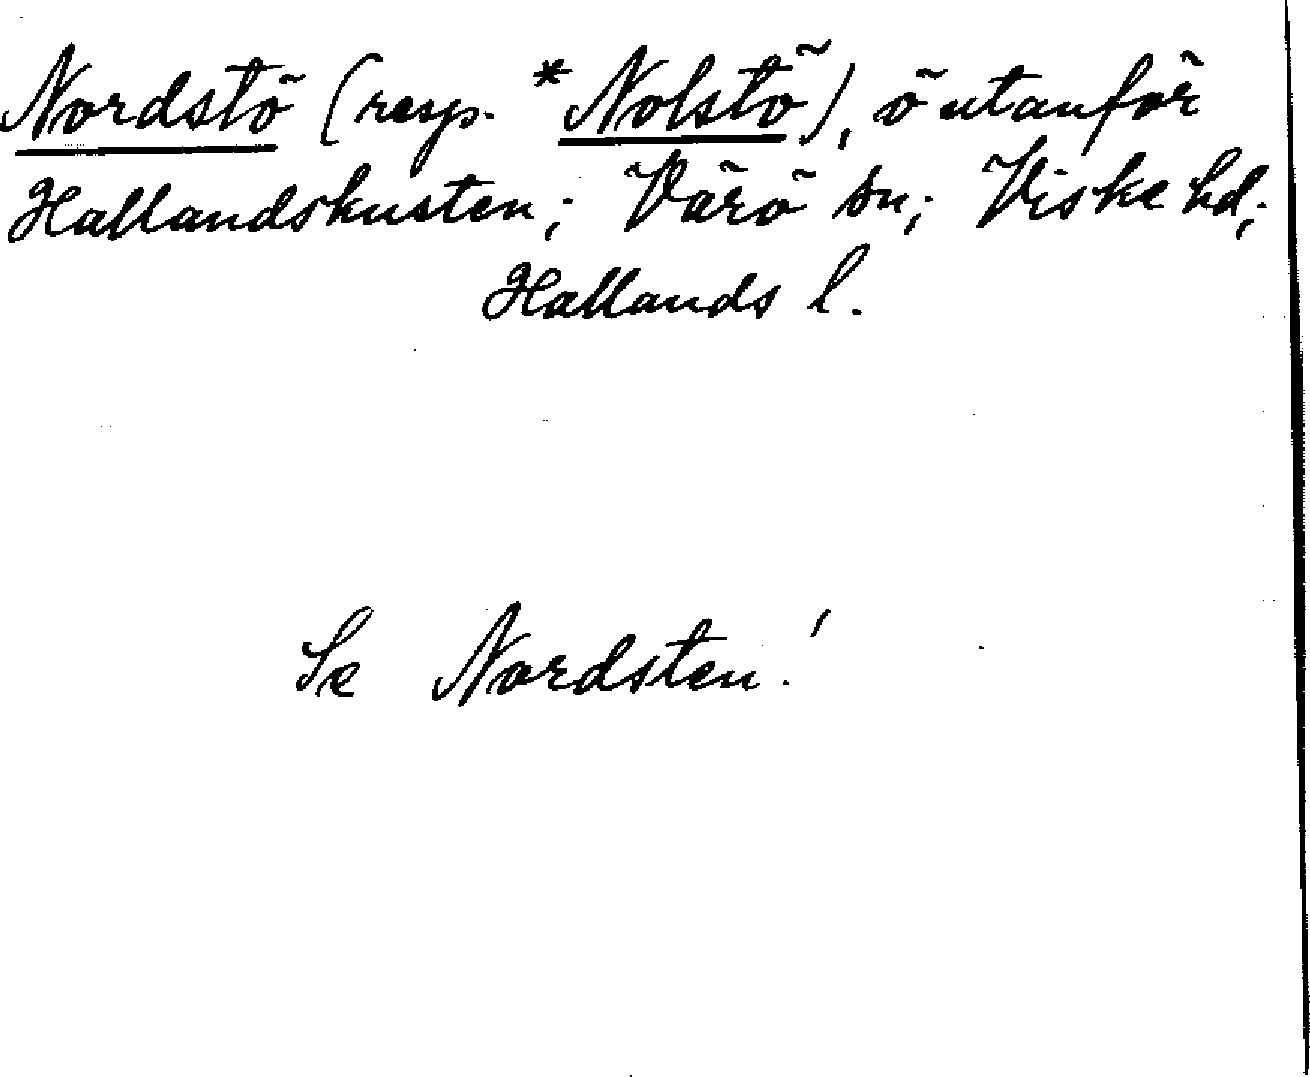 Nordstö (resp. *Nolstö), ö utanför
Hallandskusten; Värö sn; Viske hd;
Hallands l.
Se Nordsten!